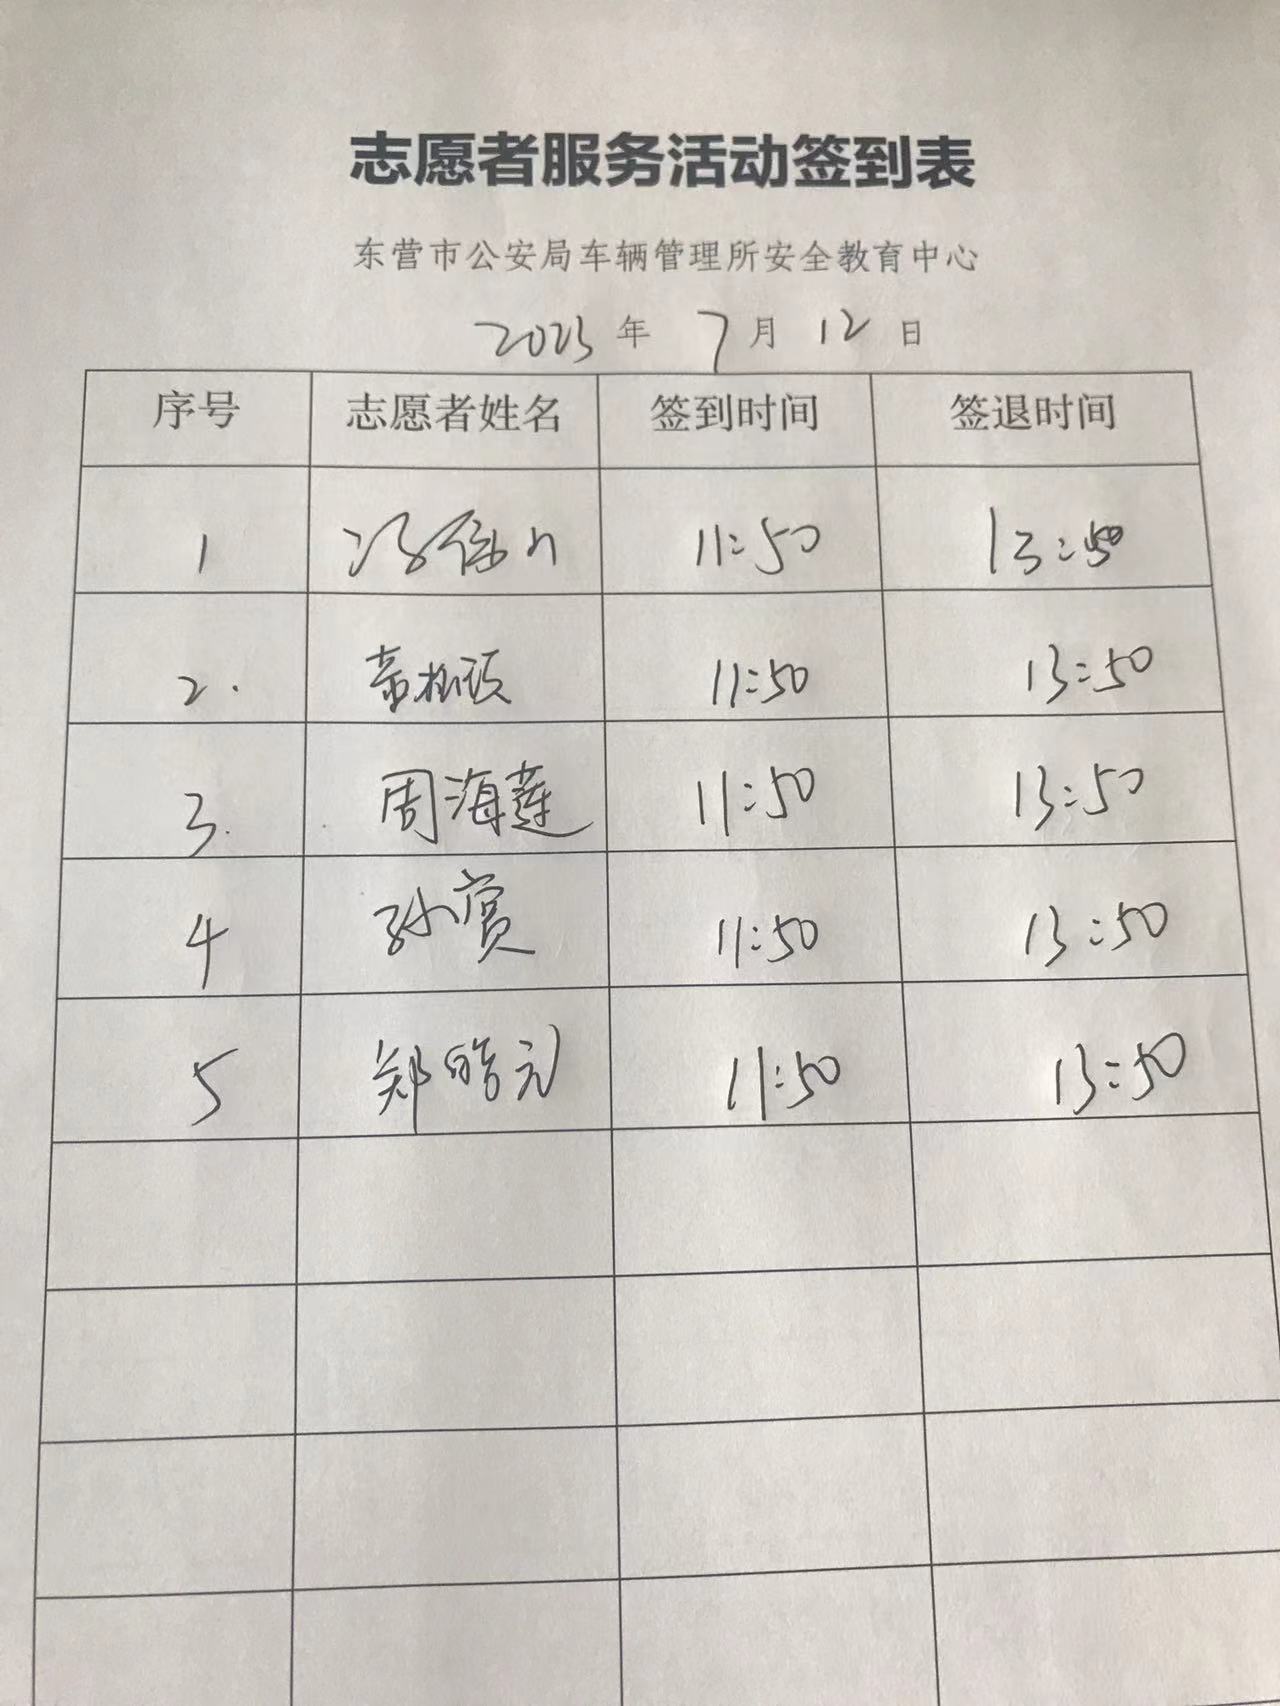 志愿者服务活动签到表
东营市公安局车辆管理所安全教育中心
2023 年 7 月 12 日
序号 志愿者姓名 签到时间 签退时间
1 11:50 13:50
2. 11:50 13:50
3. 周海莲 11:50 13:50
4 孙赏 11:50 13:50
5 郑皓元 11:50 13:50